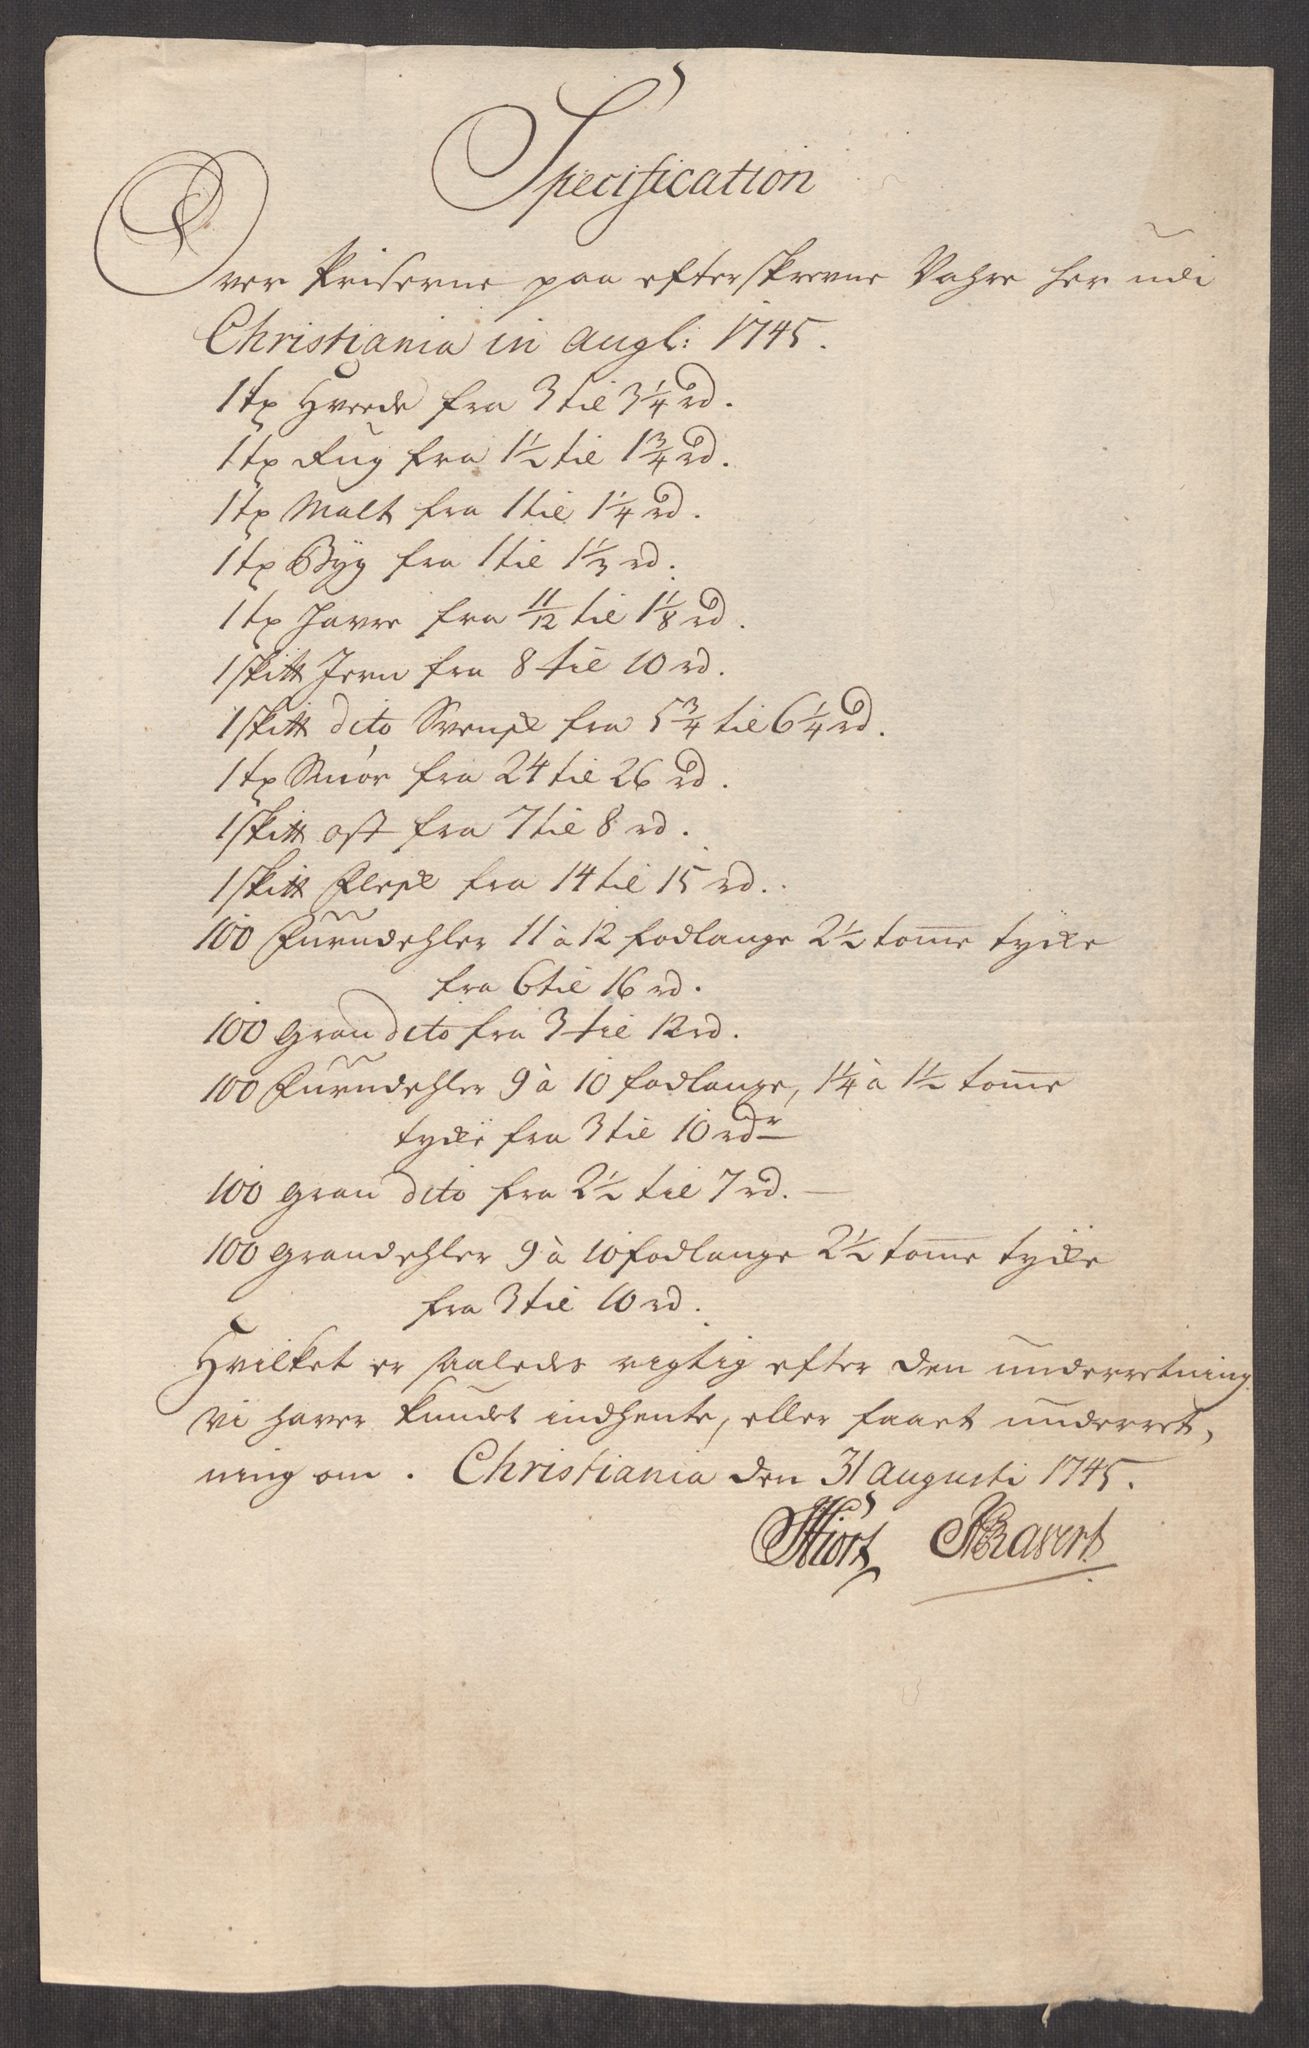 Specification
Over Priserne paa efterskrevne Vahre her udi
Christiania in Augl: 1745.
1 tø Hvede fra 3 til 3 1/4 rd.
1 tø Rug fra 1 1/2 til 1 3/4 rd.
1 tø Malt fra 1 til 1 1/4 rd.
1 tø Byg fra 1 til 1 1/3 rd.
1 tø Havre fra 11/12 til 1 1/8 rd.
1 skitt Jern fra 8 til 10 rd.
1 skitt dito Svensk fra 5 3/4 til 6 1/4 rd.
1 tø Smør fra 24 til 26 rd.
1 skitt ost fra 7 til 8 rd.
1 skitt Flesk fra 14 til 15 rd.
100 Furudehler 11 à 12 fodlange 2 1/2 tom̅e tycke
fra 6 til 16 rd.
100 Gran dito fra 3 til 12 rd.
100 Furudehler 9 à 10 fodlange, 1 1/4 à 1 1/2 tom̅e
tycke fra 3 til 10 rdr
100 Gran dito fra 2 1/2 til 7 rd.
100 Grandehler 9 à 10 fodlange 2 1/2 tom̅e tycke
fra 3 til 10 rd.
Hvilket er saaledes rigtig efter den underretning
vi haver kundet indhente, eller faaet underret,
ning om. Christiania den 31 Augusti 1745.
Hiort Ravert